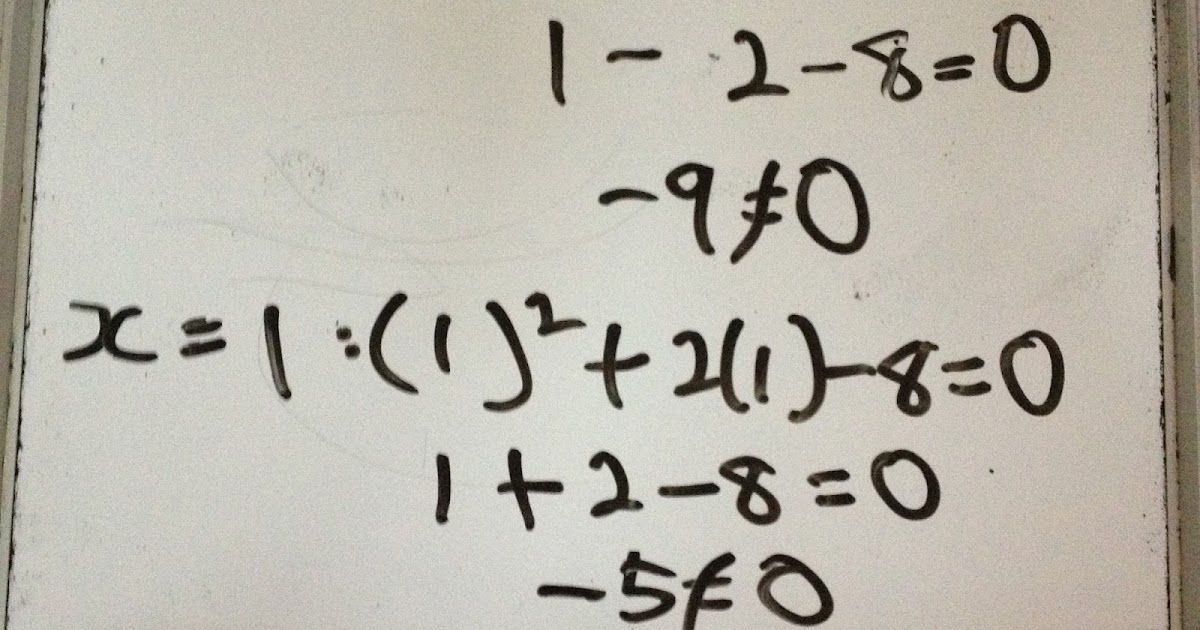 1 - 2 - 8 = 0
-9 ≠ 0
x = 1 : (1)² + 2(1) - 8 = 0
1 + 2 - 8 = 0
-5 ≠ 0